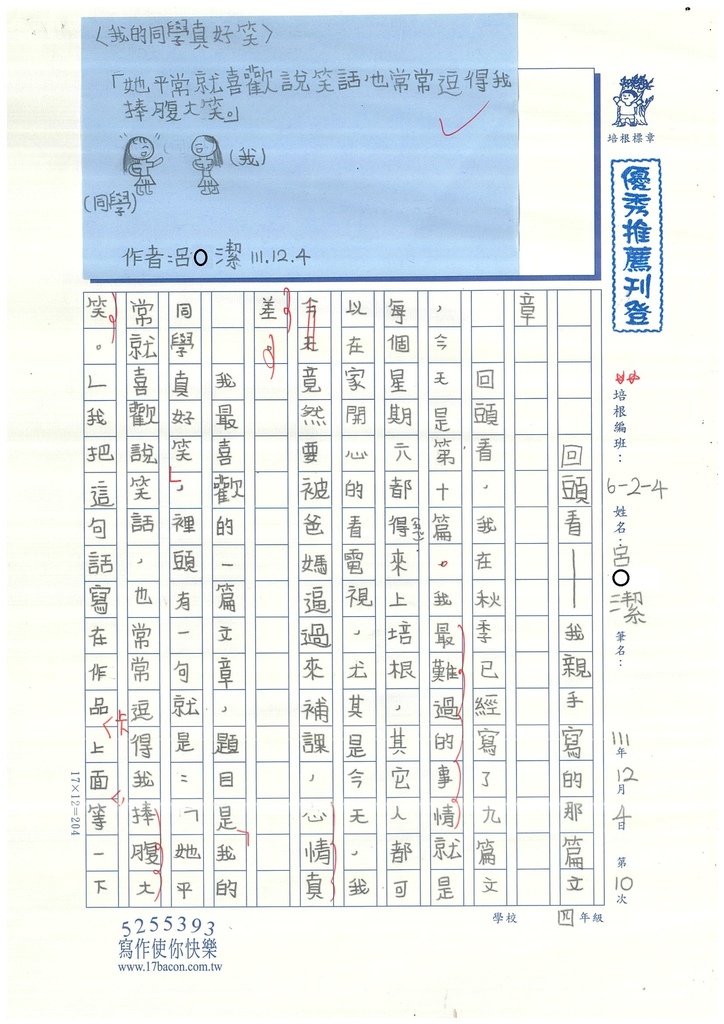 〈我的同學真好笑〉
「她平常就喜歡說笑話,也常常逗得我
捧腹大笑。」
(我)
(同學)
作者:呂○潔 111.12.4
培根標章
優秀推薦刊登
培根編班:6-2-4 姓名:呂○潔 筆名:
111年12月4日 第10次
回頭看——我親手寫的那篇文
章
回頭看,我在秋季已經寫了九篇文
,今天是第十篇。我最難過的事情就是
每個星期六都得來上培根,其它人都可
以在家開心的看電視,尤其是今天,我
今天竟然要被爸媽逼過來補課,心情真
差。
我最喜歡的一篇文章,題目是我的
同學真好笑,裡頭有一句就是:「她平
常就喜歡說笑話,也常常逗得我捧腹大
笑。」我把這句話寫在作品上面等一下
卡
17×12=204
學校 四年級
5255393
寫作使你快樂
www.17bacon.com.tw